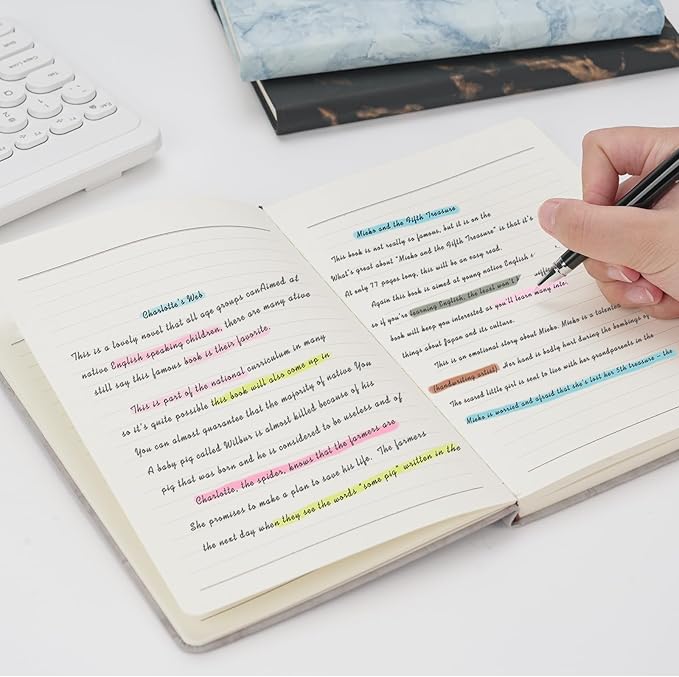 Charlotte's Web
This is a lovely novel that all age groups canAimed at
native English speaking children, there are many ative
still say this famous book is their favorite.
This is part of the national curriculum in many
so it's quite possible this book will also come up in
You can almost guarantee that the majority of native You
A baby pig called Wilbur is almost killed because of his
pig that was born and he is considered to be useless and of
Charlotte, the spider, knows that the farmers are
She promises to make a plan to save his life. The farmers
the next day when they see the words "some pig" written in the
Mieko and the Fifth Treasure
This book is not really so famous, but it is on the
What's great about "Mieko and the Fifth Treasure" is that it's
At only 77 pages long, this will be an easy read.
Again this book is aimed at young native English s
so if you're learning English, the level won't
book will keep you interested as you'll learn many inte
things about Japan and its culture.
This is an emotional story about Mieko. Mieko is a talented
handwriting artist. Her hand is badly hurt during the bombings of
The scared little girl is sent to live with her grandparents in the
Mieko is worried and afraid that she's lost her 5th treasure - the